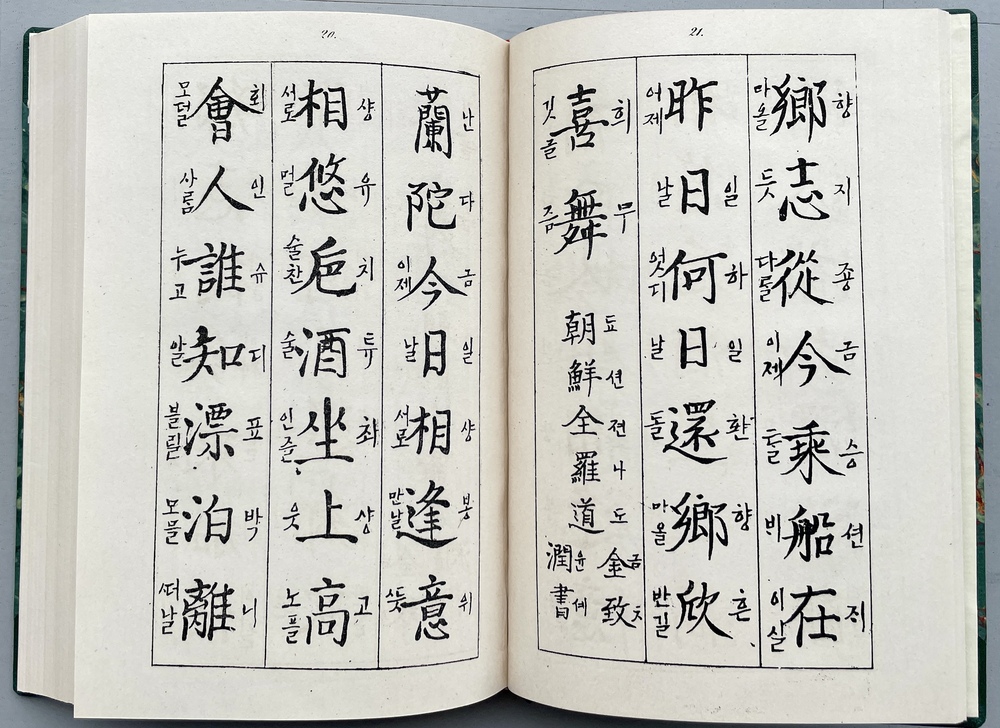 20.
난 다 금 일 샹 봉 위
蘭 陀 今 日 相 逢 意
이제 날 서로 만날 뜻
샹 유 치 튜 최 샹 고
相 悠 巵 酒 坐 上 高
서로 멀 술찬 술 인즐 웃 노플
회 인 슈 디 표 박 니
會 人 誰 知 漂 泊 離
모덜 사룸 누고 알 블릴 모믈 떠날
21.
향 지 죵 금 승 션 직
鄉 志 從 今 乘 船 在
마올 듯 다룰 이제 틀 비 이실
일 하 일 환 향 흔
昨 日 何 日 還 鄉 欣
어제 날 엇디 날 돌 마올 반길
희 무
喜 舞
깃글 즘
됴 션 젼 나 도
朝 鮮 全 羅 道
금 치
金 致
윤 셰
潤 書